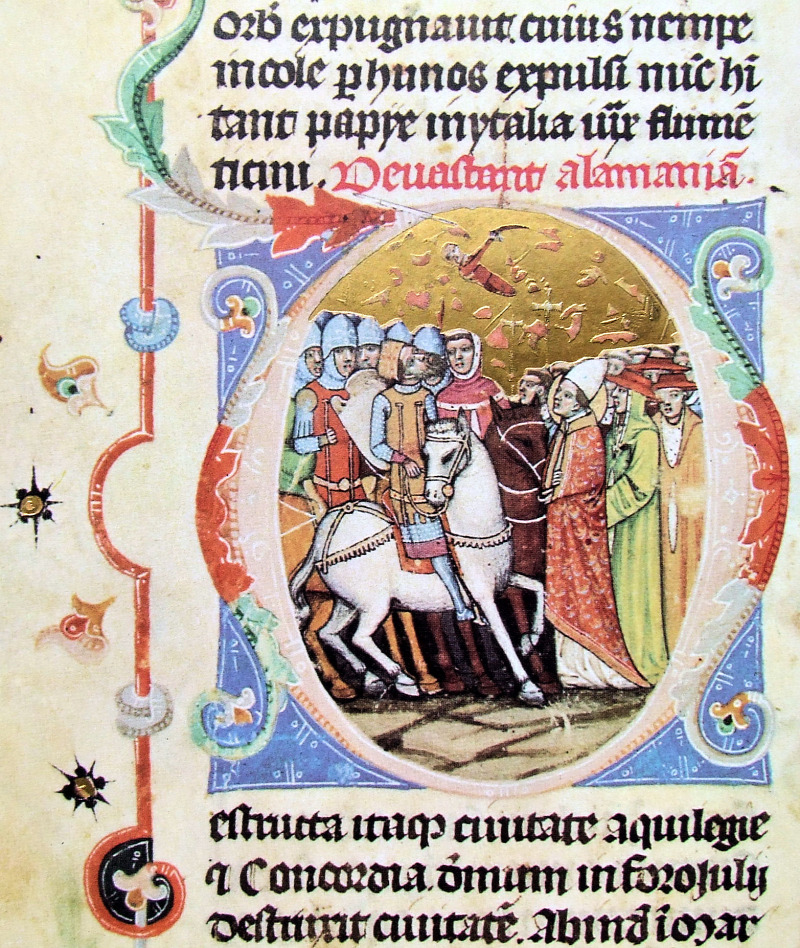 orb̄ expugnauit. cuius nempe
incole ꝑ hunos expulsi nūc hī
tant papye in ytalia iux̄ flumē
ticini. Deuastant alamaniā.
estructa itaqꝫ ciuitate aquilegie
⁊ Concordia. om̄um in foro Iulij
destruxit ciuitatē. Ab inđ ī mar